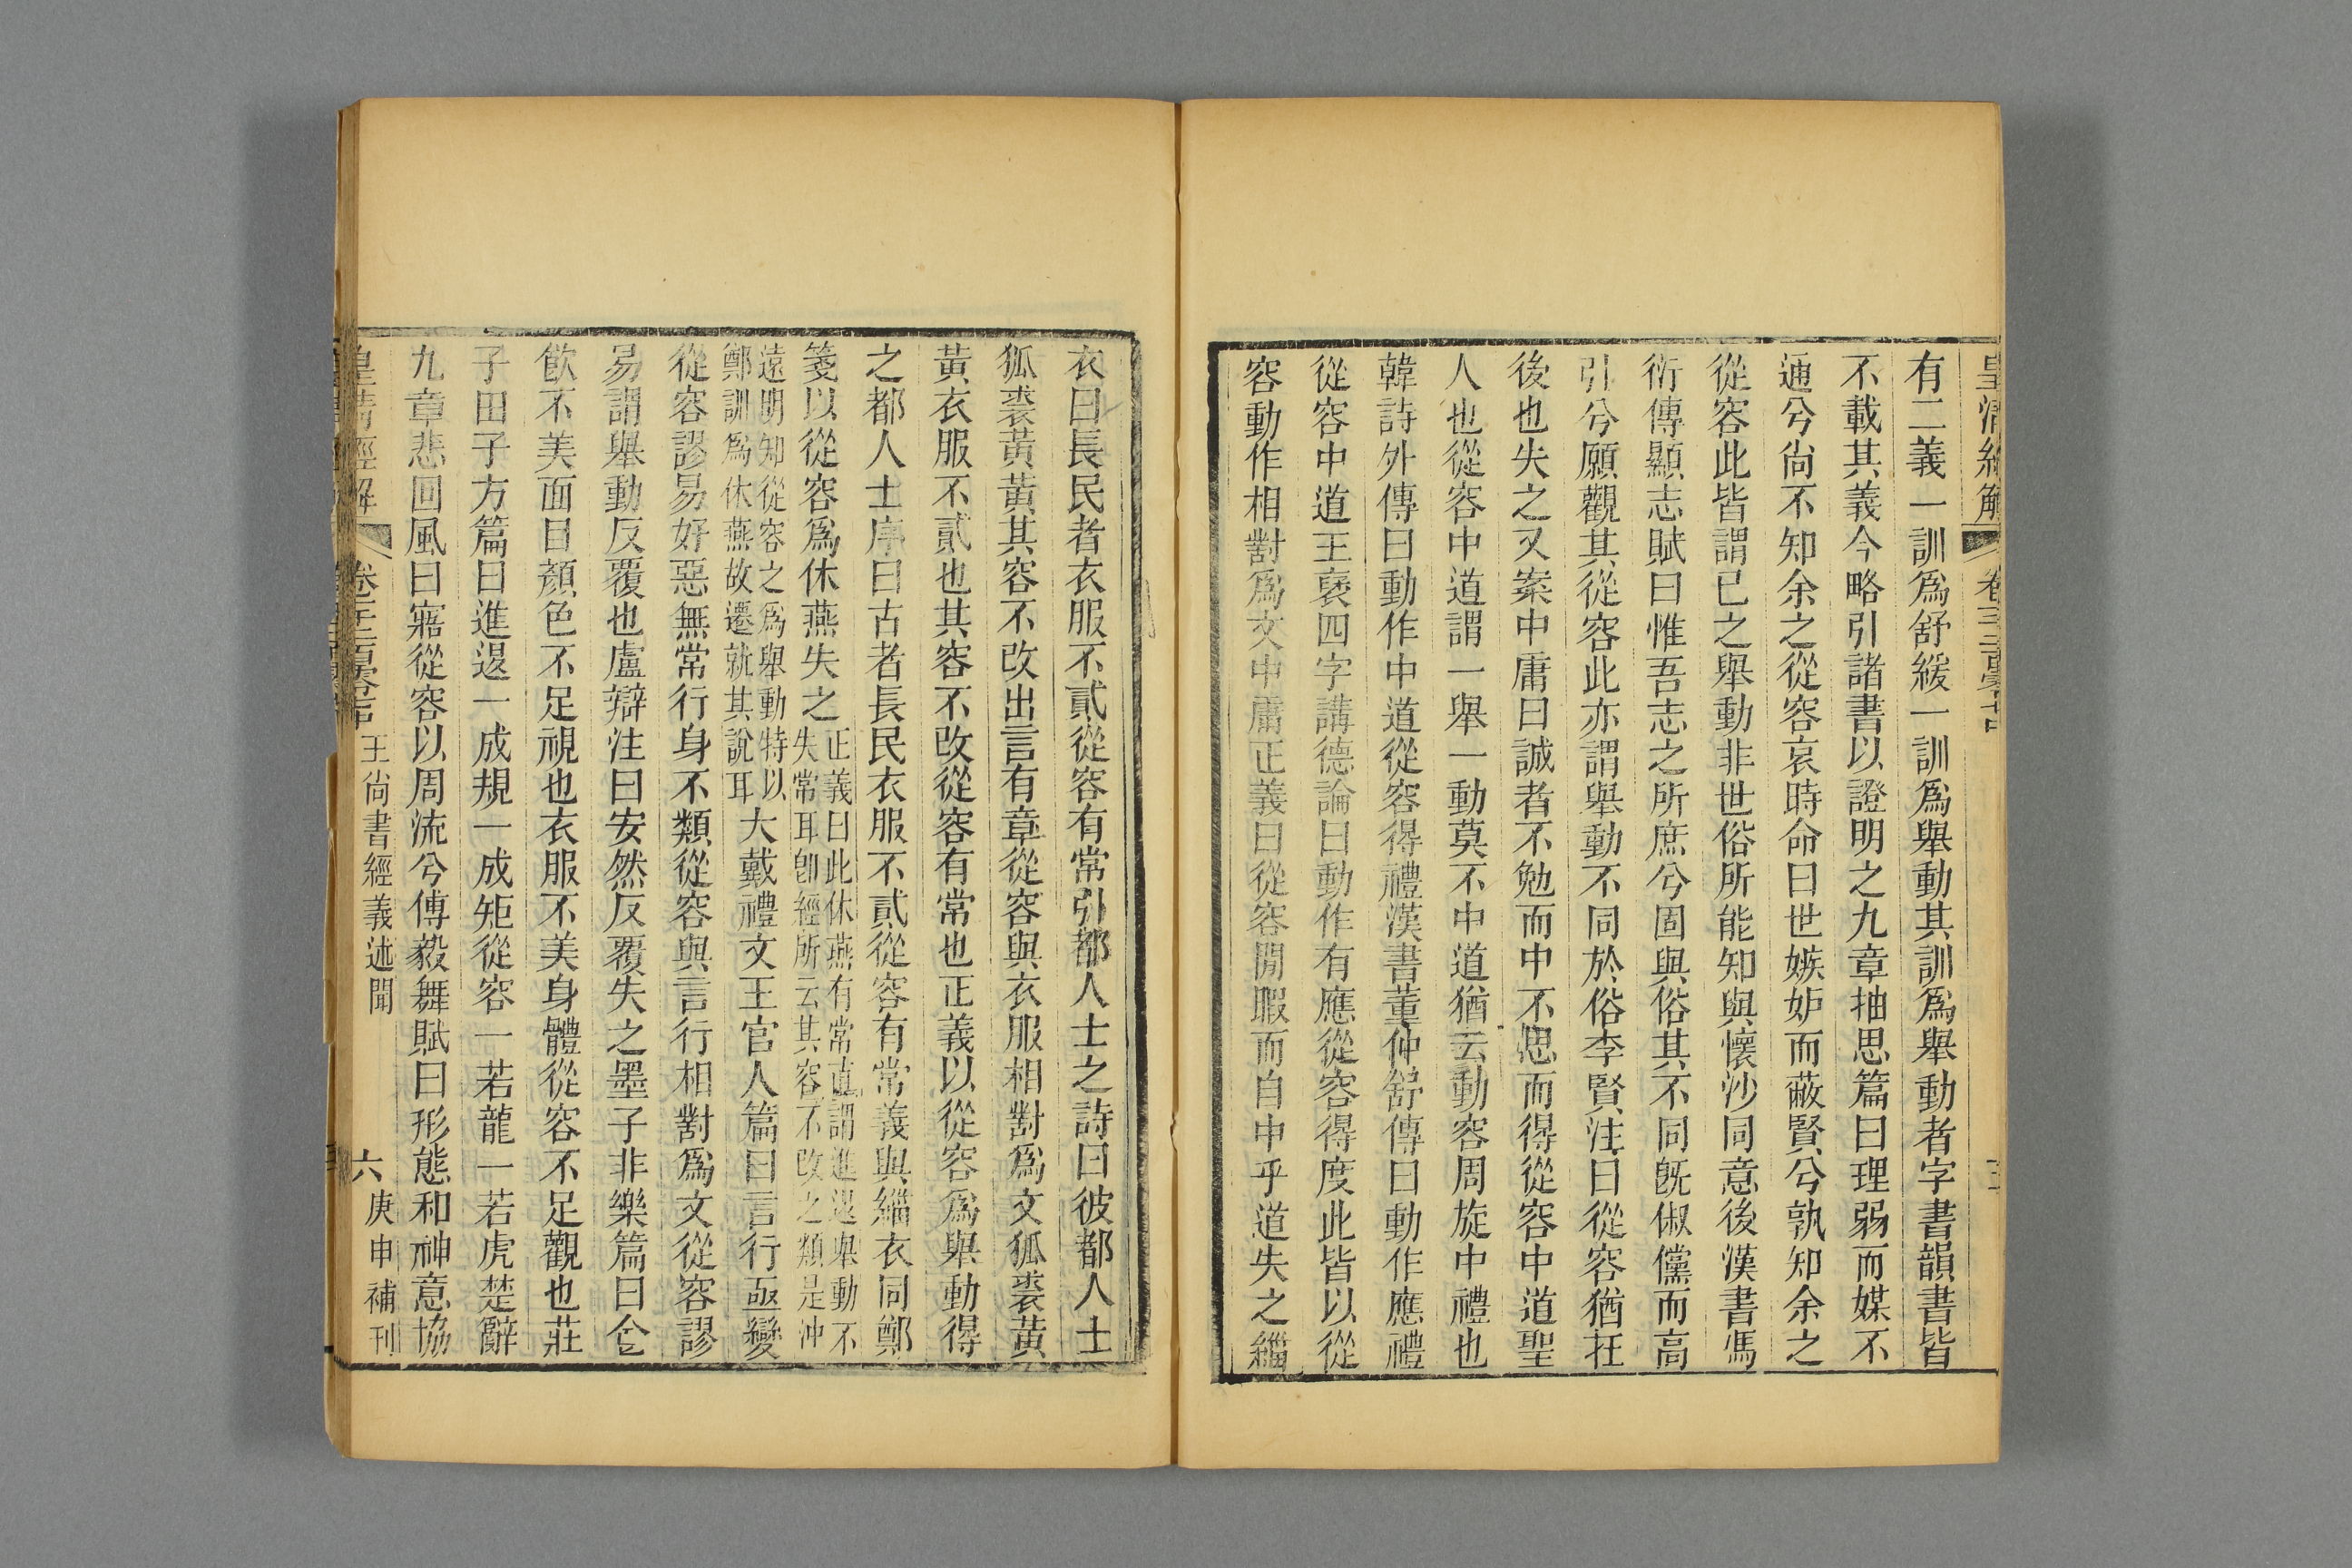 皇清經解
有二義一訓爲舒緩一訓爲舉動其訓爲舉動者字書韻書皆
不載其義今略引諸書以證明之九章抽思篇曰理弱而媒不
通兮尙不知余之從容哀時命曰世嫉妒而蔽賢兮孰知余之
從容此皆謂已之舉動非世俗所能知與懷沙同意後漢書馮
衍傳顯志賦曰惟吾志之所庶兮固與俗其不同旣俶儻而高
引兮願觀其從容此亦謂舉動不同於俗李賢注曰從容猶在
後也失之又案中庸曰誠者不勉而中不思而得從容中道聖
人也從容中道謂一舉一動莫不中道猶云動容周旋中禮也
韓詩外傳曰動作中道從容得禮漢書董仲舒傳曰動作應禮
從容中道王襃四字講德論曰動作有應從容得度此皆以從
容動作相對爲文中庸正義曰從容閒暇而自中乎道失之緇
衣曰長民者衣服不貳從容有常引都人士之詩曰彼都人士
狐裘黃黃其容不改出言有章從容與衣服相對爲文狐裘黃
黃衣服不貳也其容不改從容有常也正義以從容爲舉動得
之都人士序曰古者長民衣服不貳從容有常義與緇衣同鄭
箋以從容爲休燕失之
正義曰此休燕有常直謂進退舉動不
失常耳卽經所云其容不改之類是沖
遠明知從容之爲舉動特以
鄭訓爲休燕故遷就其說耳
大戴禮文王官人篇曰言行亟變
從容謬易好惡無常行身不類從容與言行相對爲文從容謬
易謂舉動反覆也盧辯注曰安然反覆失之墨子非樂篇曰食
飮不美面目顏色不足視也衣服不美身體從容不足觀也莊
子田子方篇曰進退一成規一成矩從容一若龍一若虎楚辭
九章悲回風曰寤從容以周流兮傅毅舞賦曰形態和神意協
皇淸經解
王尙書經義述聞
六
庚申補刊